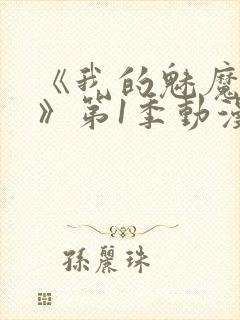 《我的魅魔
》第1季動漫
孫麗珠